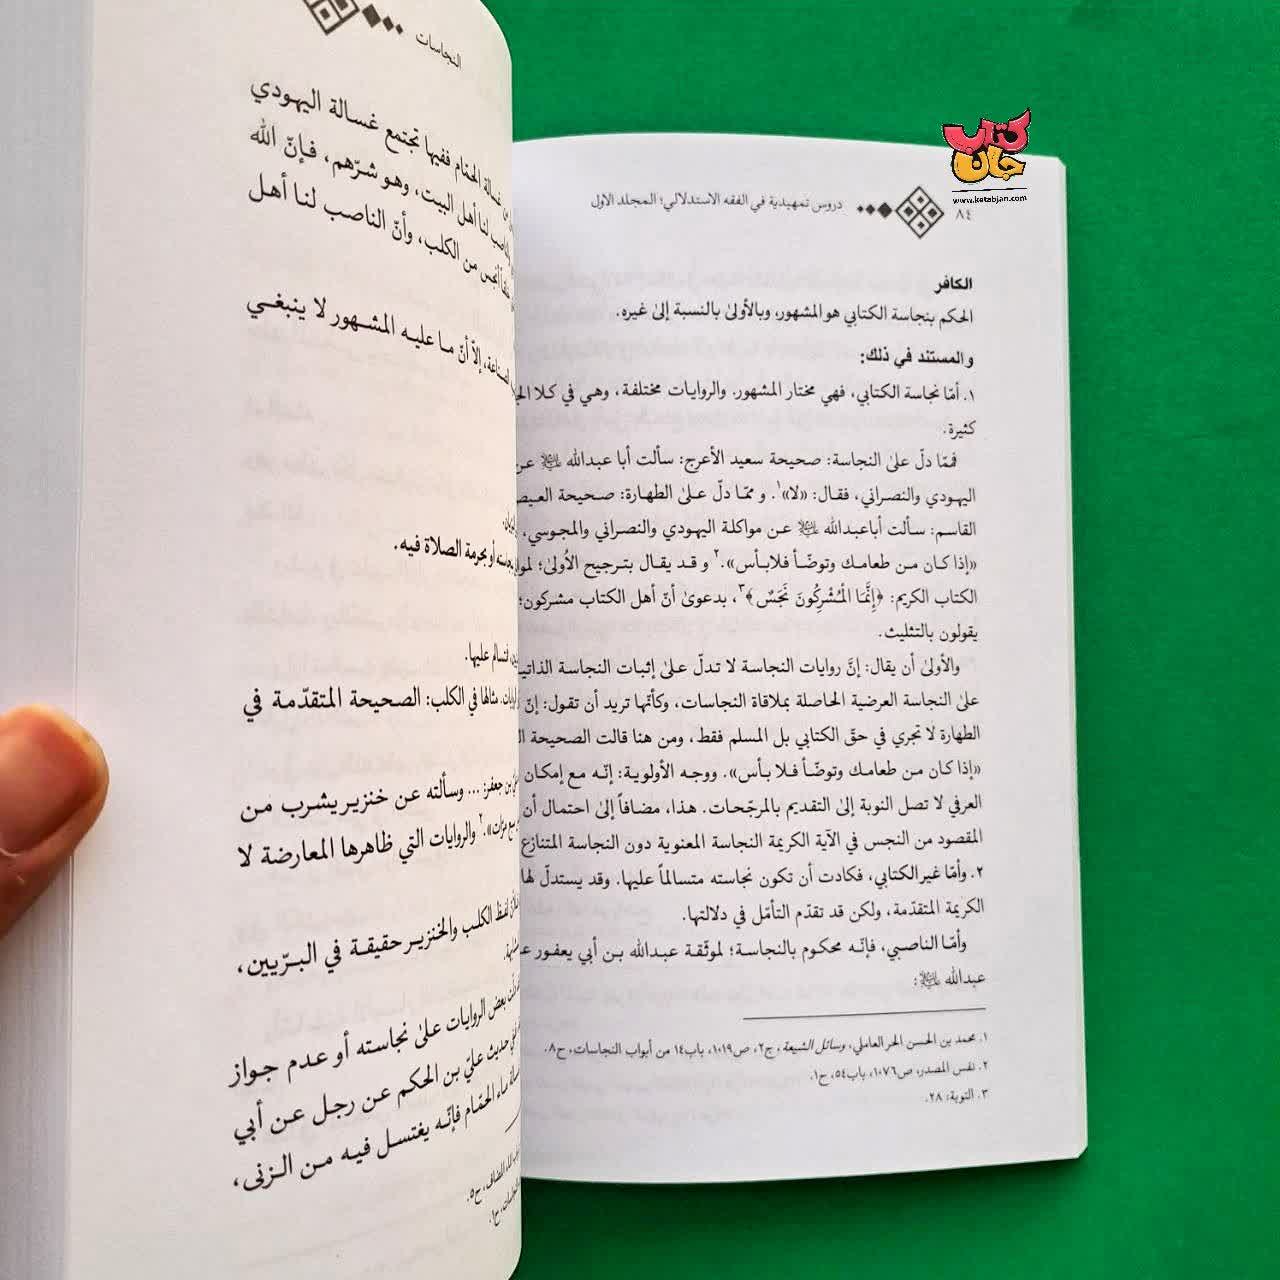 كتاب
جان
www.ketabjan.com
٨٤
دروس تمهيدية في الفقه الاستدلالي؛ المجلد الاول
الكافر
الحكم بنجاسة الكتابي هو المشهور، وبالأولىٰ بالنسبة إلىٰ غيره.
والمستند في ذلك:
١. أمّا نجاسة الكتابي، فهي مختار المشهور. والروايات مختلفة، وهي في كلا
كثيرة.
فممّا دلّ علىٰ النجاسة: صحيحة سعيد الأعرج: سألت أبا عبدالله عليه السلام عن
اليهودي والنصراني، فقال: «لا»١. و ممّا دلّ علىٰ الطهارة: صحيحة العيص
القاسم: سألت أباعبدالله عليه السلام عن مواكلة اليهودي والنصراني والمجوسي،
«إذا كان من طعامك وتوضّأ فلابأس».٢ و قد يقال بترجيح الأُولىٰ؛
الكتاب الكريم: ﴿إِنَّمَا الْمُشْرِكُونَ نَجَسٌ﴾٣، بدعوىٰ أنّ أهل الكتاب مشركون؛
يقولون بالتثليث.
والأولىٰ أن يقال: إنَّ روايات النجاسة لا تدلّ علىٰ إثبات النجاسة
علىٰ النجاسة العرضية الحاصلة بملاقاة النجاسات، وكأنّها تريد أن تقول: إنّ
الطهارة لا تجري في حقّ الكتابي بل المسلم فقط، ومن هنا قالت الصحيحة
«إذا كان من طعامك وتوضّأ فلا بأس». ووجه الأولوية: إنّه مع إمكان
العرفي لا تصل النوبة إلىٰ التقديم بالمرجّحات. هذا، مضافاً إلىٰ احتمال أن
المقصود من النجس في الآية الكريمة النجاسة المعنوية دون النجاسة المتنازع
٢. وأمّا غير الكتابي، فكادت أن تكون نجاسته متسالماً عليها. وقد يستدلّ لها
الكريمة المتقدّمة، ولكن قد تقدّم التأمّل في دلالتها.
وأمّا الناصبي، فإنّه محكوم بالنجاسة؛ لموثّقة عبدالله بن أبي يعفور
عبدالله عليه السلام:
١. محمد بن الحسن الحر العاملي، وسائل الشيعة، ج٢، ص١٠١٩، باب١٤ من أبواب النجاسات، ح٨.
٢. نفس المصدر، ص١٠٧٦، باب٥٤، ح١.
٣. التوبة: ٢٨.
النجاسات
غسالة الحمّام ففيها تجتمع غسالة اليهودي
لنا أهل البيت، وهو شرّهم، فإنّ الله
أنجس من الكلب، وأنّ الناصب لنا أهل
إلاّ أنّ ما عليه المشهور لا ينبغي
أو بحرمة الصلاة فيه.
عليها.
مثالها في الكلب: الصحيحة المتقدّمة في
بن جعفر: ... وسألته عن خنزير يشرب من
مرّات».٢ والروايات التي ظاهرها المعارضة لا
لفظ الكلب والخنزير حقيقة في البرّيين،
بعض الروايات علىٰ نجاسته أو عدم جواز
حديث عليّ بن الحكم عن رجل عن أبي
ماء الحمّام فإنّه يغتسل فيه من الزنى،
الماء المضاف، ح٥.
ح١.